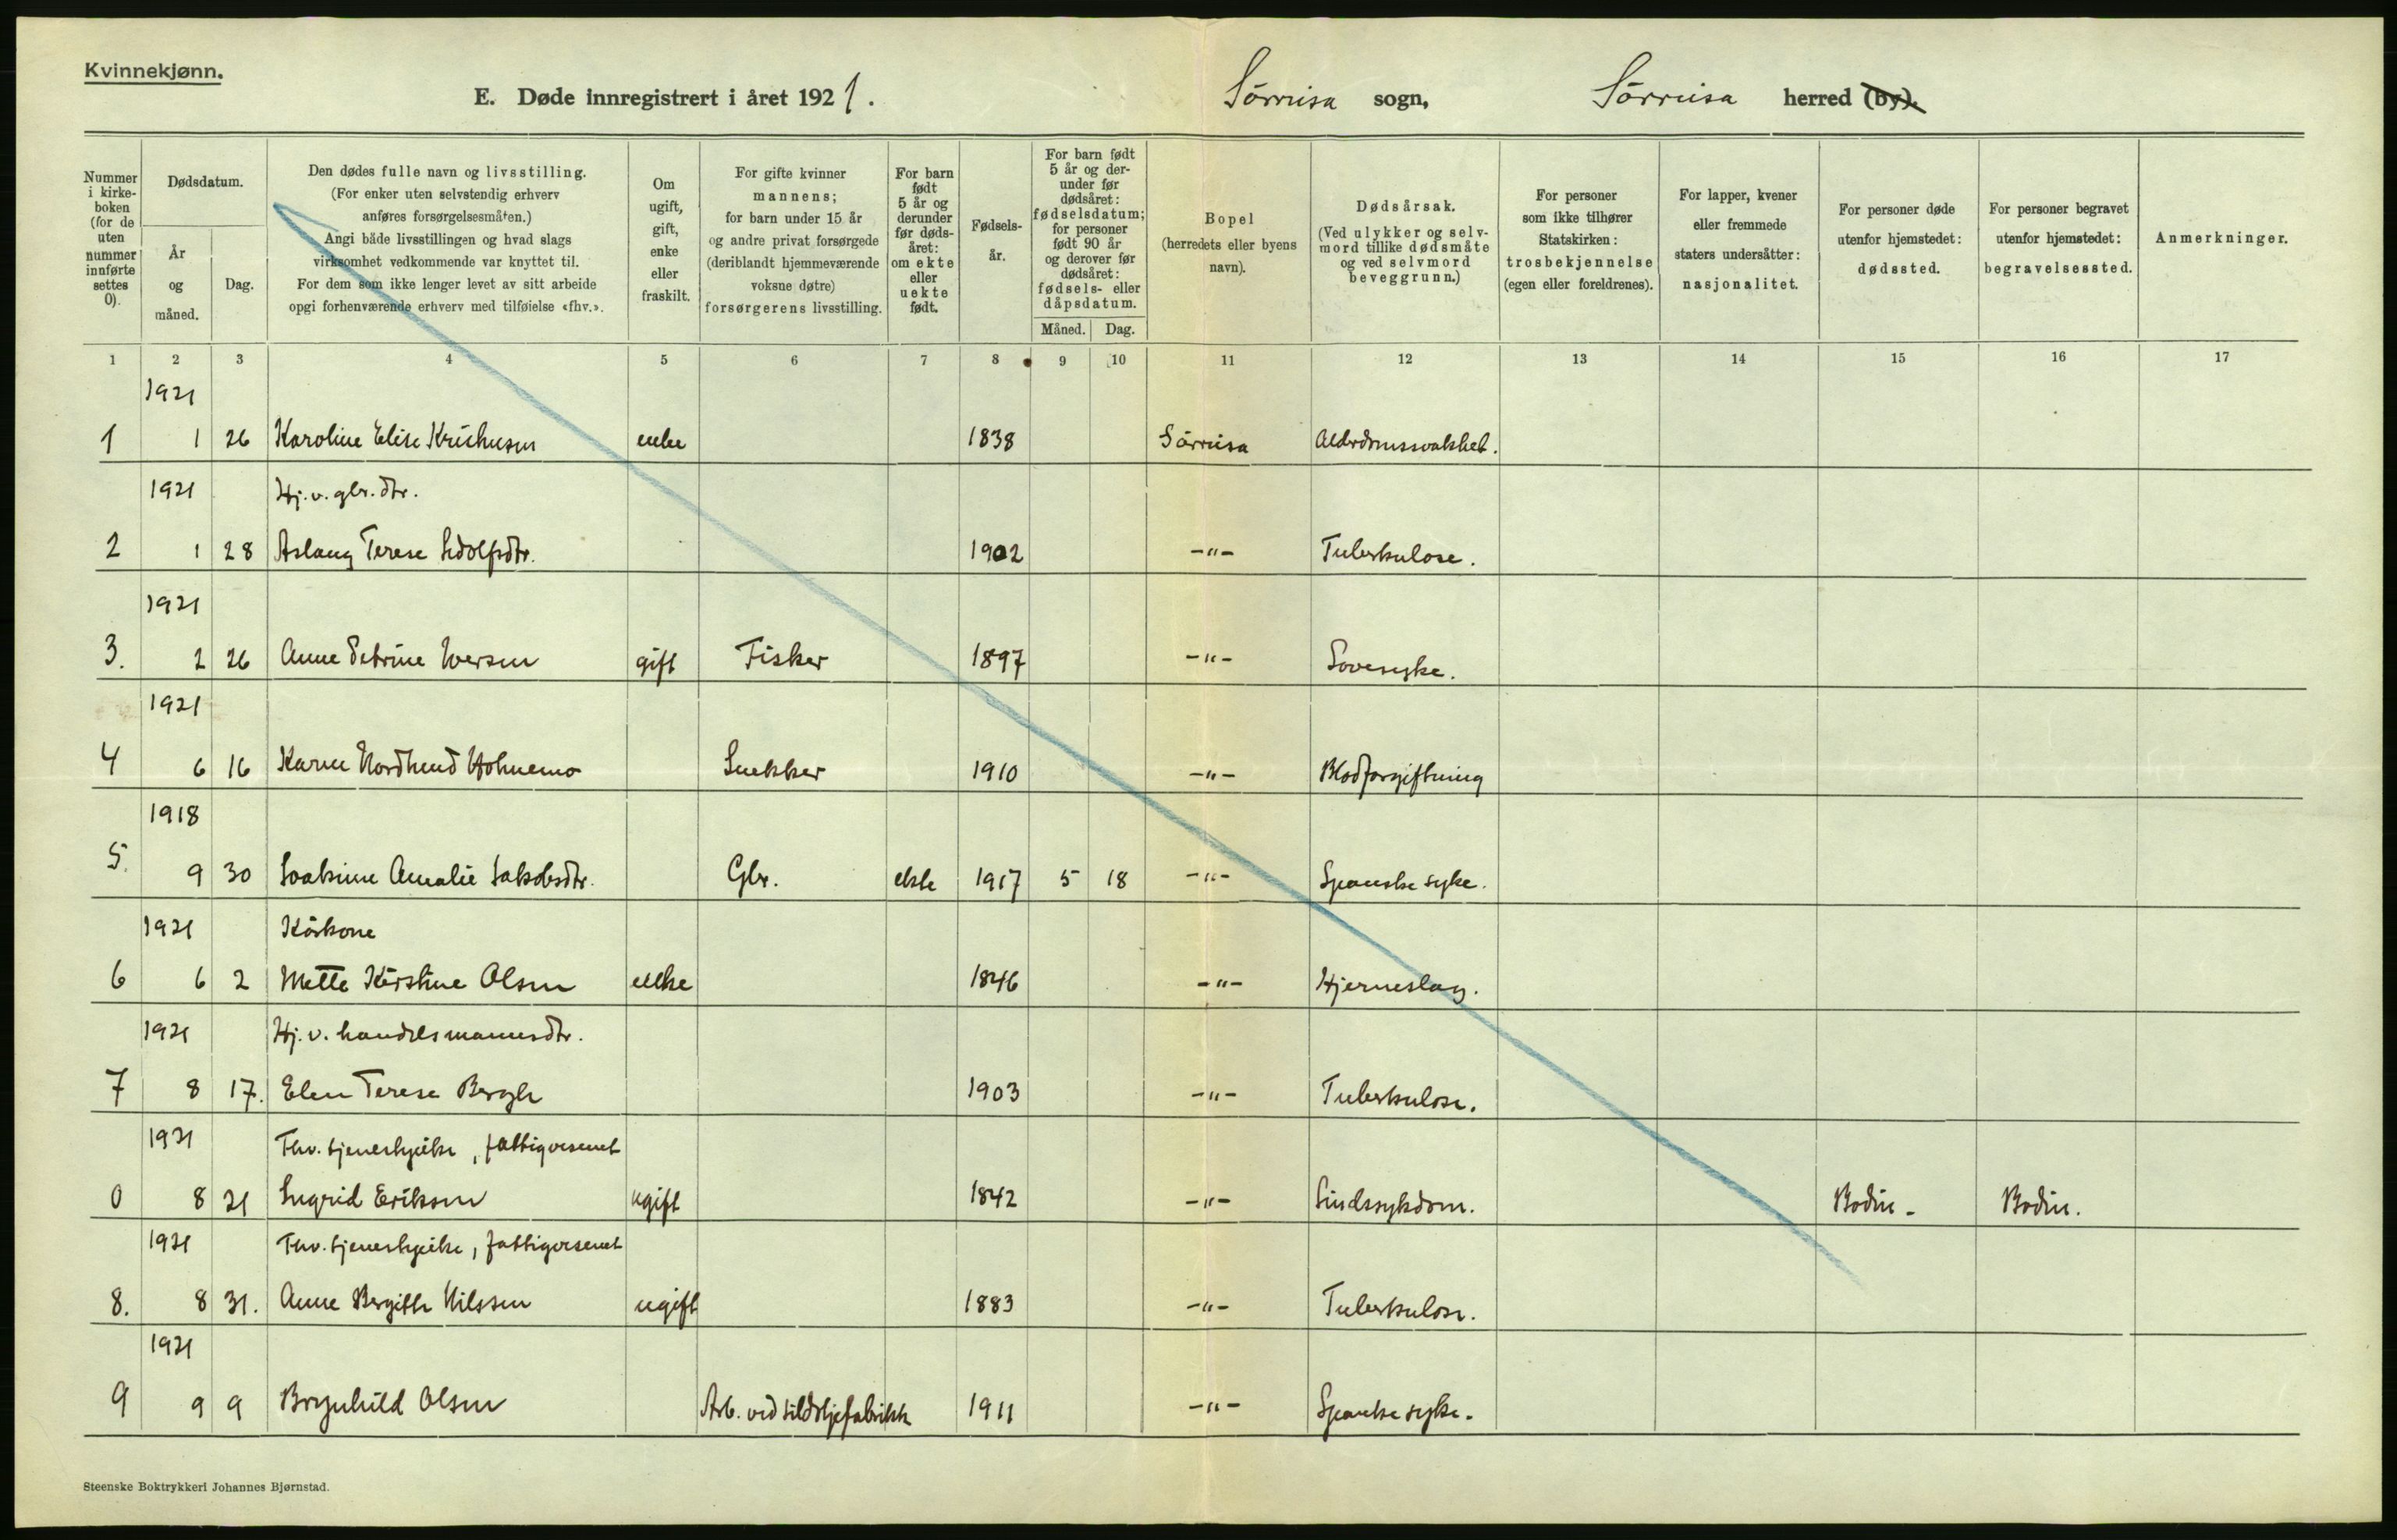 Kvinnekjønn.
E. Døde innregistrert i året 1921. Sørreisa sogn, Sørreisa herred (by).
Nummer i kirke-boken (for de uten nummer innførte settes 0).
Dødsdatum.
År og måned.
Dag.
Den dødes fulle navn og livsstilling.
(For enker uten selvstendig erhverv
anføres forsørgelsesmåten.)
Angi både livsstillingen og hvad slags
virksomhet vedkommende var knyttet til.
For dem som ikke lenger levet av sitt arbeide
opgi forhenværende erhverv med tilføielse «fhv.».
Om ugift, gift, enke eller fraskilt.
For gifte kvinner
mannens;
for barn under 15 år
og andre privat forsørgede
(deriblandt hjemmeværende
voksne døtre)
forsørgerens livsstilling.
For barn født 5 år og derunder før døds-året: om ekte eller uekte født.
Fødsels-år.
For barn født 5 år og der-under før dødsåret: fødselsdatum; for personer født 90 år og derover før dødsåret: fødsels- eller dåpsdatum.
Måned. Dag.
Bopel
(herredets eller byens
navn).
Dødsårsak.
(Ved ulykker og selv-
mord tillike dødsmåte
og ved selvmord
beveggrunn.)
For personer
som ikke tilhører
Statskirken:
trosbekjennelse
(egen eller foreldrenes).
For lapper, kvener
eller fremmede
staters undersåtter:
nasjonalitet.
For personer døde
utenfor hjemstedet:
dødssted.
For personer begravet
utenfor hjemstedet:
begravelsessted.
Anmerkninger.
1 2 3 4 5 6 7 8 9 10 11 12 13 14 15 16 17
1921
1 1 26 Karoline Elise Kristiansen enke 1838 Sørreisa Alderdomssvakhet.
1921 Hj.v. gbr. dtr.
2 1 28 Aslaug Terese Edolfsdtr. 1902 -"- Tuberkulose.
1921
3. 2 26 Anne Petrine Iversen gift Fisker 1897 -"- Sovesyke.
1921
4 6 16 Karen Nordhund Holmemo Snekker 1910 -"- Blodforgiftning
1918
5. 9 30 Joakime Amalie Jakobsdtr. Gbr. ekte 1917 5 18 -"- Spanske syke.
1921 Kårkone
6 6 2 Mette Kirstine Olsen enke 1846 -"- Hjerneslag.
1921 Hj. v. handelsmannsdtr.
7 8 17. Elen Terese Bergli 1903 -"- Tuberkulose.
1921 Fhv. tjenestepike, fattigvesenet
0 8 21 Ingrid Eriksen ugift 1842 -"- Sindssykdom. Bodin. Bodin.
1921 Fhv. tjenestepike, fattigvesenet
8. 8 31. Anne Bergitte Nilssen ugift 1883 -"- Tuberkulose.
1921
9 9 9 Brynhild Olsen Arb. ved sildoljefabrikk 1911 -"- Spanske syke.
Steenske Boktrykkeri Johannes Bjørnstad.